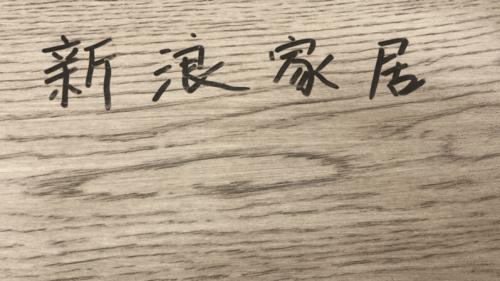 新浪家居